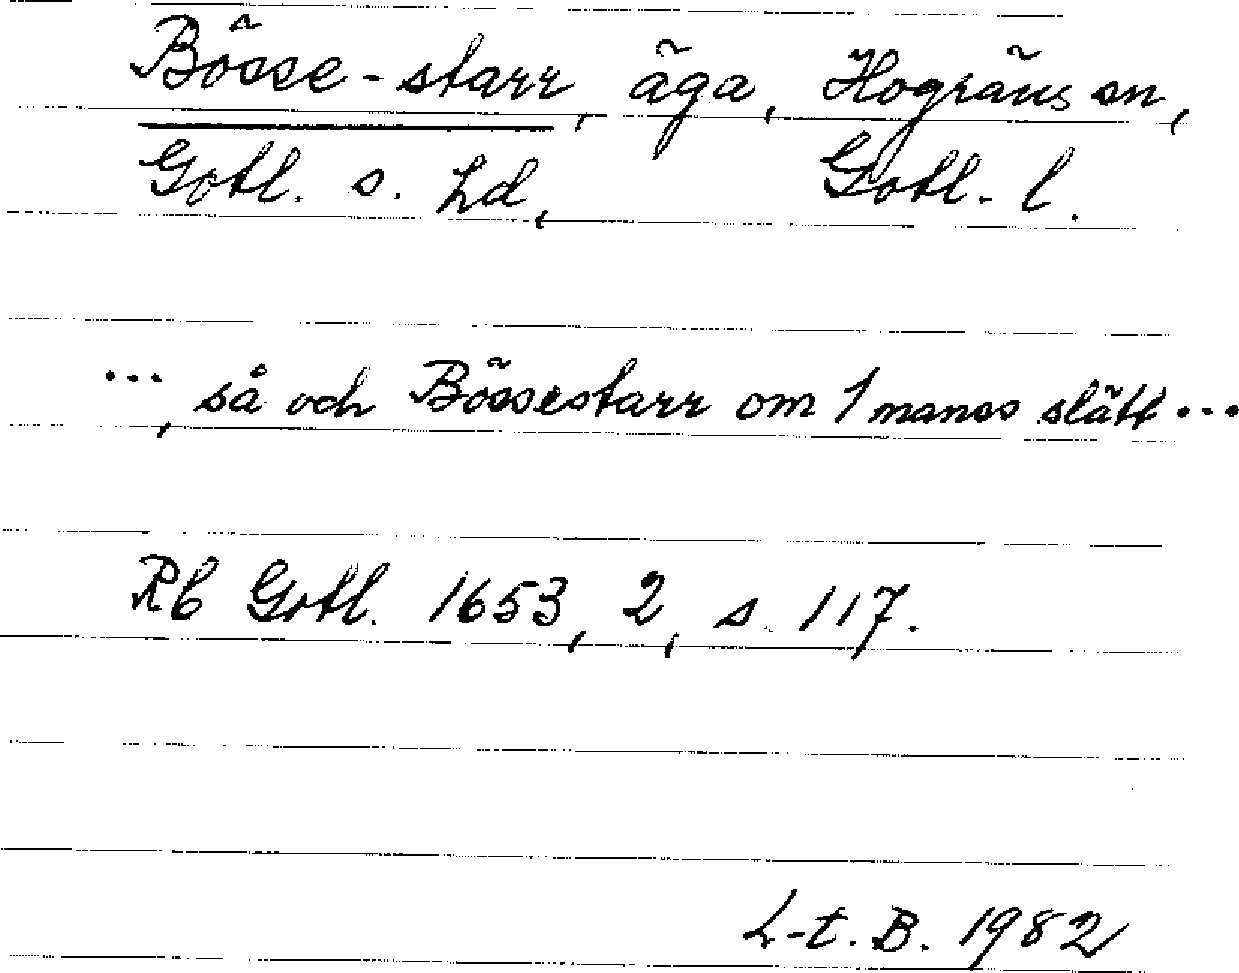 Bösse-starr, äga, Hogräns sn,
Gotl. s. hd, Gotl. l.
..., så och Bössestarr om 1 manss slätt ...
Rb Gotl. 1653, 2, s. 117.
L-t. B. 1982